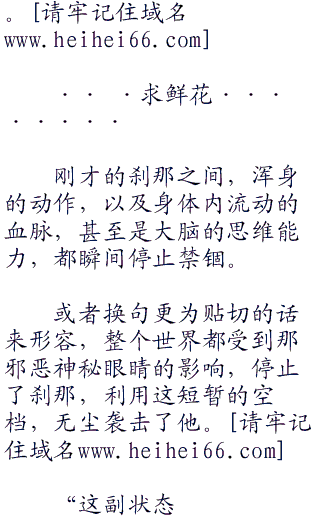 。[请牢记住域名
www.heihei66.com]
· · ·求鲜花· · ·
· · · · ·
刚才的刹那之间，浑身
的动作，以及身体内流动的
血脉，甚至是大脑的思维能
力，都瞬间停止禁锢。
或者换句更为贴切的话
来形容，整个世界都受到那
邪恶神秘眼睛的影响，停止
了刹那，利用这短暂的空
档，无尘袭击了他。[请牢记
住域名www.heihei66.com]
“这副状态